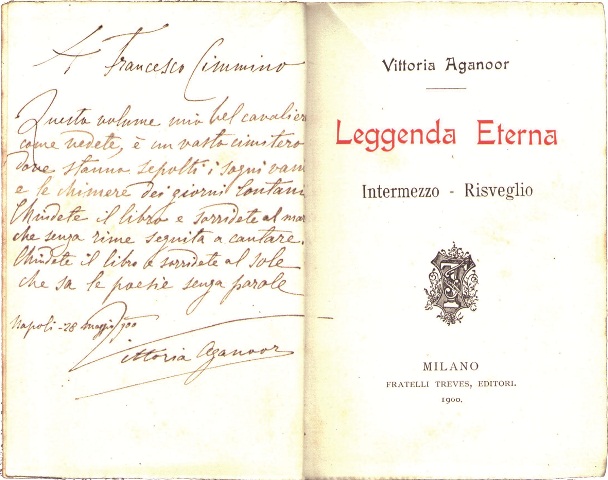 A Francesco Cimmino
Questo volume mio bel cavalier
come vedete, è un vasto cimitero
dove stanno sepolti i sogni vani
e le chimere dei giorni lontani
Chiudete il libro e sorridete al mar
che senza rime seguita a cantare.
Chiudete il libro e sorridete al sole
che sa le poesie senza parole
Napoli - 28 maggio 900
Vittoria Aganoor
Vittoria Aganoor
Leggenda Eterna
Intermezzo - Risveglio
MILANO
FRATELLI TREVES, EDITORI.
1900.